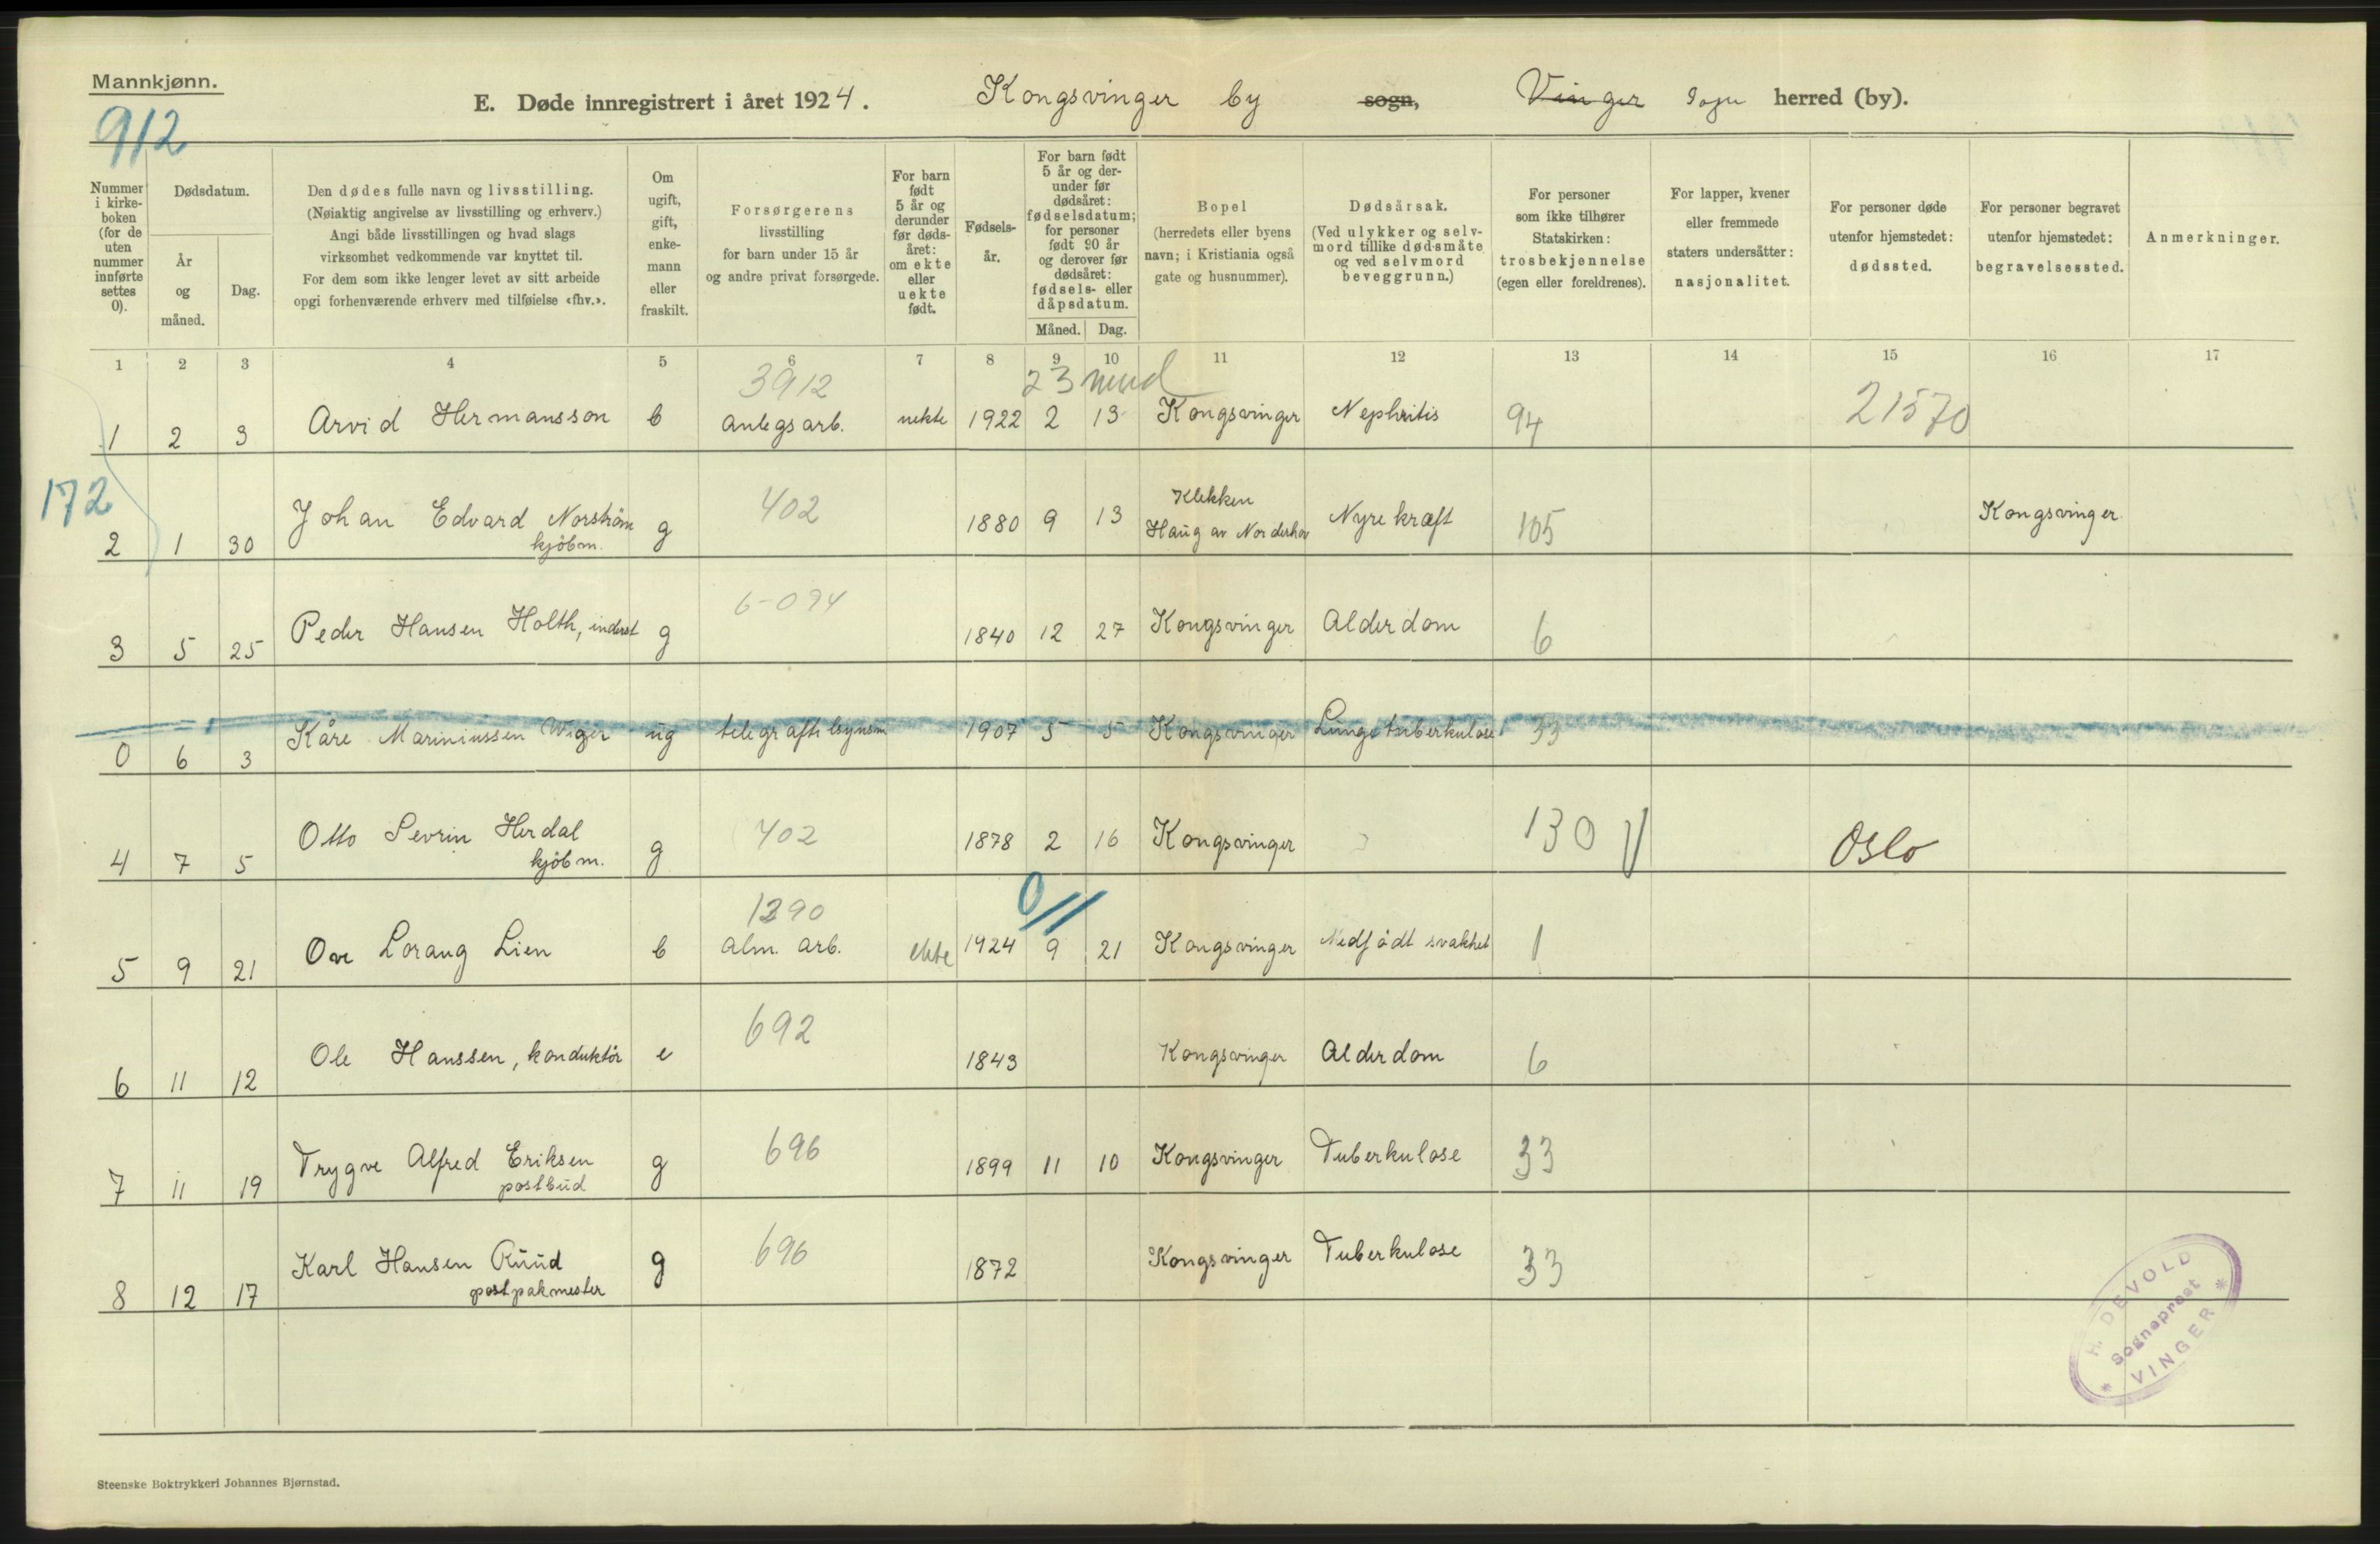 Mannkjønn.
912
E. Døde innregistrert i året 1924. Kongsvinger by sogn, Vinger sogn herred (by).
Nummer i kirke-boken (for de uten nummer innførte settes 0).
Dødsdatum.
År og måned.
Dag.
Den dødes fulle navn og livsstilling.
(Nøiaktig angivelse av livsstilling og erhverv.)
Angi både livsstillingen og hvad slags
virksomhet vedkommende var knyttet til.
For dem som ikke lenger levet av sitt arbeide
opgi forhenværende erhverv med tilføielse «fhv.».
Om ugift, gift, enke-mann eller fraskilt.
Forsørgerens
livsstilling
for barn under 15 år
og andre privat forsørgede.
For barn født 5 år og derunder før døds-året: om ekte eller uekte født.
Fødsels-år.
For barn født 5 år og der-under før dødsåret: fødselsdatum; for personer født 90 år og derover før dødsåret: fødsels- eller dåpsdatum.
Måned. Dag.
Bopel
(herredets eller byens
navn; i Kristiania også
gate og husnummer).
Dødsårsak.
(Ved ulykker og selv-
mord tillike dødsmåte
og ved selvmord
beveggrunn.)
For personer
som ikke tilhører
Statskirken:
trosbekjennelse
(egen eller foreldrenes).
For lapper, kvener
eller fremmede
staters undersåtter:
nasjonalitet.
For personer døde
utenfor hjemstedet:
dødssted.
For personer begravet
utenfor hjemstedet:
begravelsessted.
Anmerkninger.
1 2 3 4 5 6 7 8 9 10 11 12 13 14 15 16 17
3912 23 mnd
1 2 3 Arvid Hermansson b Anlegsarb. uekte 1922 2 13 Kongsvinger Nephritis 94 21570
172
2 1 30 Johan Edvard Norström kjöbm. g 402 1880 9 13 Klekken Haug av Norderhov Nyrekræft 105 Kongsvinger
3 5 25 Peder Hansen Holth, inderst g 6-094 1840 12 27 Kongsvinger Alderdom 6
0 6 3 Kåre Mariniussen Wiger ug telegraftilsynsm 1907 5 5 Kongsvinger Lungetuberkulose 33
4 7 5 Otto Sevrin Herdal kjöbm. g 402 1878 2 16 Kongsvinger 130 V Oslo
1290 0//
5 9 21 Ove Lorang Lien b Alm. arb. ekte 1924 9 21 Kongsvinger Medfödt svakhet 1
6 11 12 Ole Hanssen, konduktör e 692 1843 Kongsvinger Alderdom 6
7 11 19 Trygve Alfred Eriksen postbud g 696 1899 11 10 Kongsvinger Tuberkulose 33
8 12 17 Karl Hansen Ruud postpakmester g 696 1872 Kongsvinger Tuberkulose 33
H. DEVOLD
Sogneprest
* VINGER *
Steenske Boktrykkeri Johannes Bjørnstad.